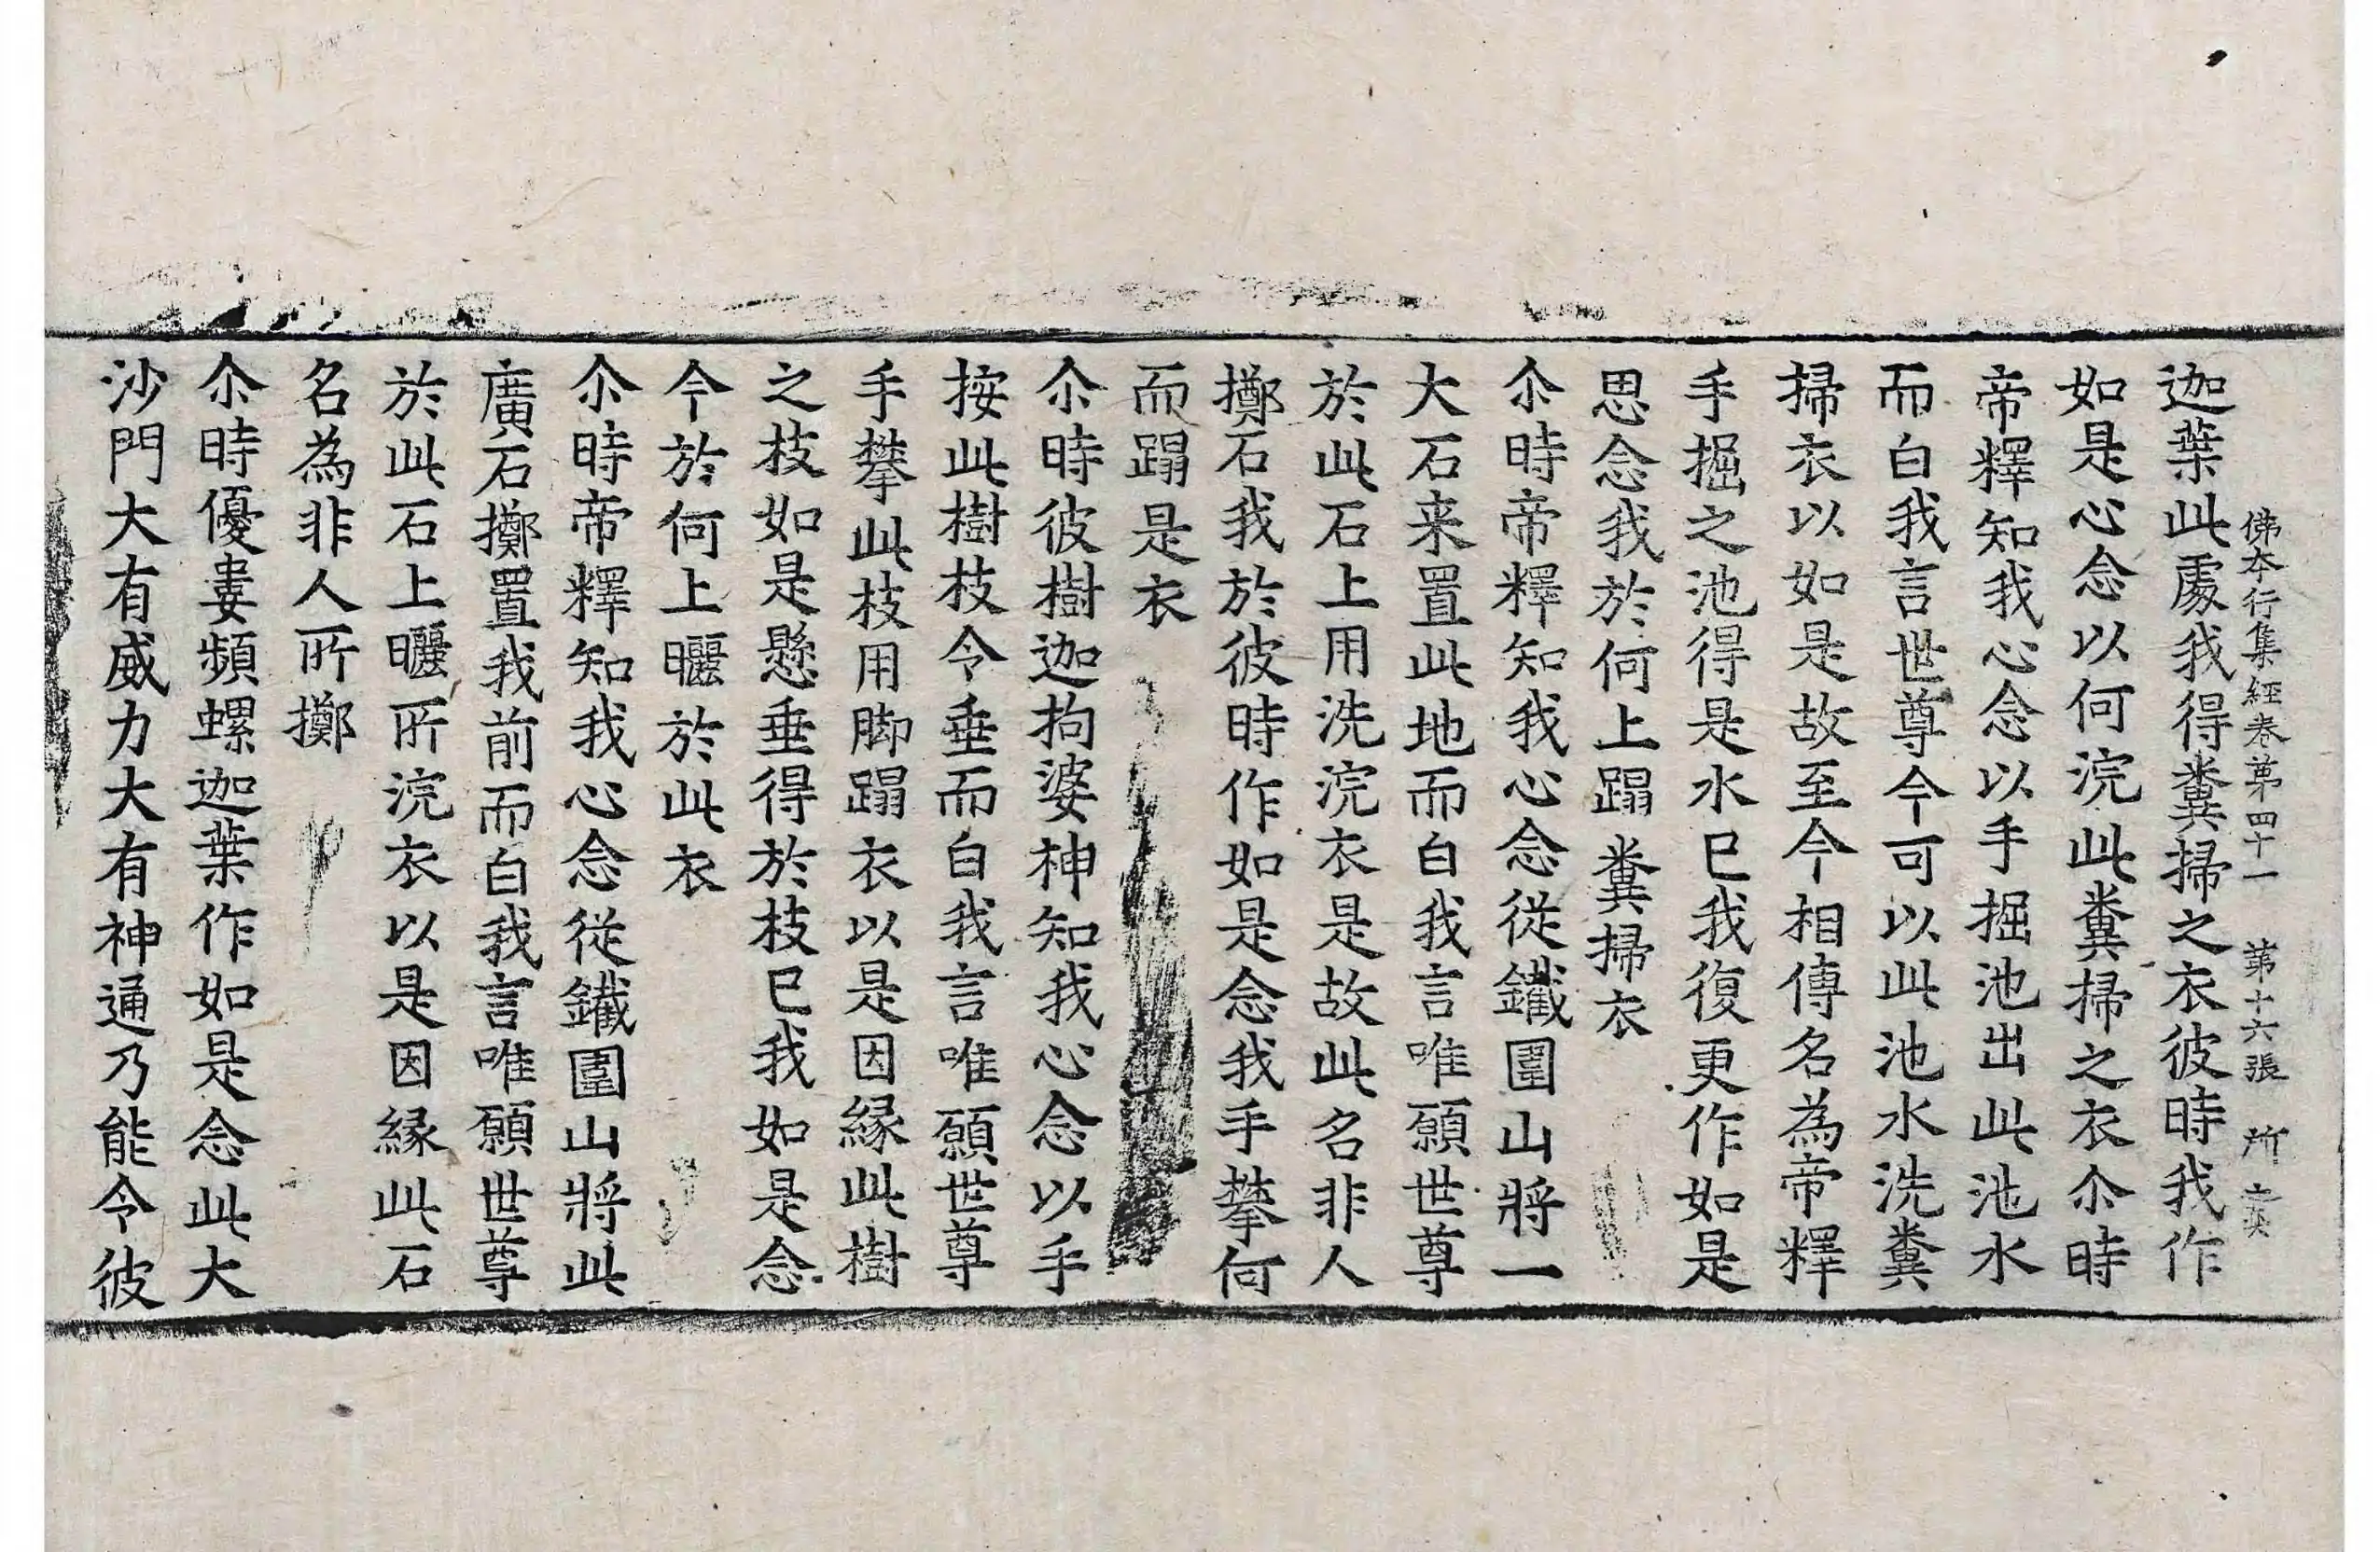 佛本行集經卷苐四十一　苐十六張　所
迦葉此處我得糞掃之衣彼時我作
如是心念以何浣此糞掃之衣尒時
帝釋知我心念以手掘池出此池水
而白我言世尊今可以此池水洗糞
掃衣以如是故至今相傳名為帝釋
手掘之池得是水已我復更作如是
思念我於何上蹋糞掃衣
尒時帝釋知我心念從鐵圍山將一
大石来置此地而白我言唯願世尊
於此石上用洗浣衣是故此名非人
擲石我於彼時作如是念我手攀何
而蹋是衣
尒時彼樹迦拘婆神知我心念以手
按此樹枝令垂而白我言唯願世尊
手攀此枝用脚蹋衣以是因縁此樹
之枝如是懸垂得於枝已我如是念
今於何上曬於此衣
尒時帝釋知我心念從鐵圍山將此
廣石擲置我前而白我言唯願世尊
於此石上曬所浣衣以是因縁此石
名為非人所擲
尒時優婁頻螺迦葉作如是念此大
沙門大有威力大有神通乃能令彼